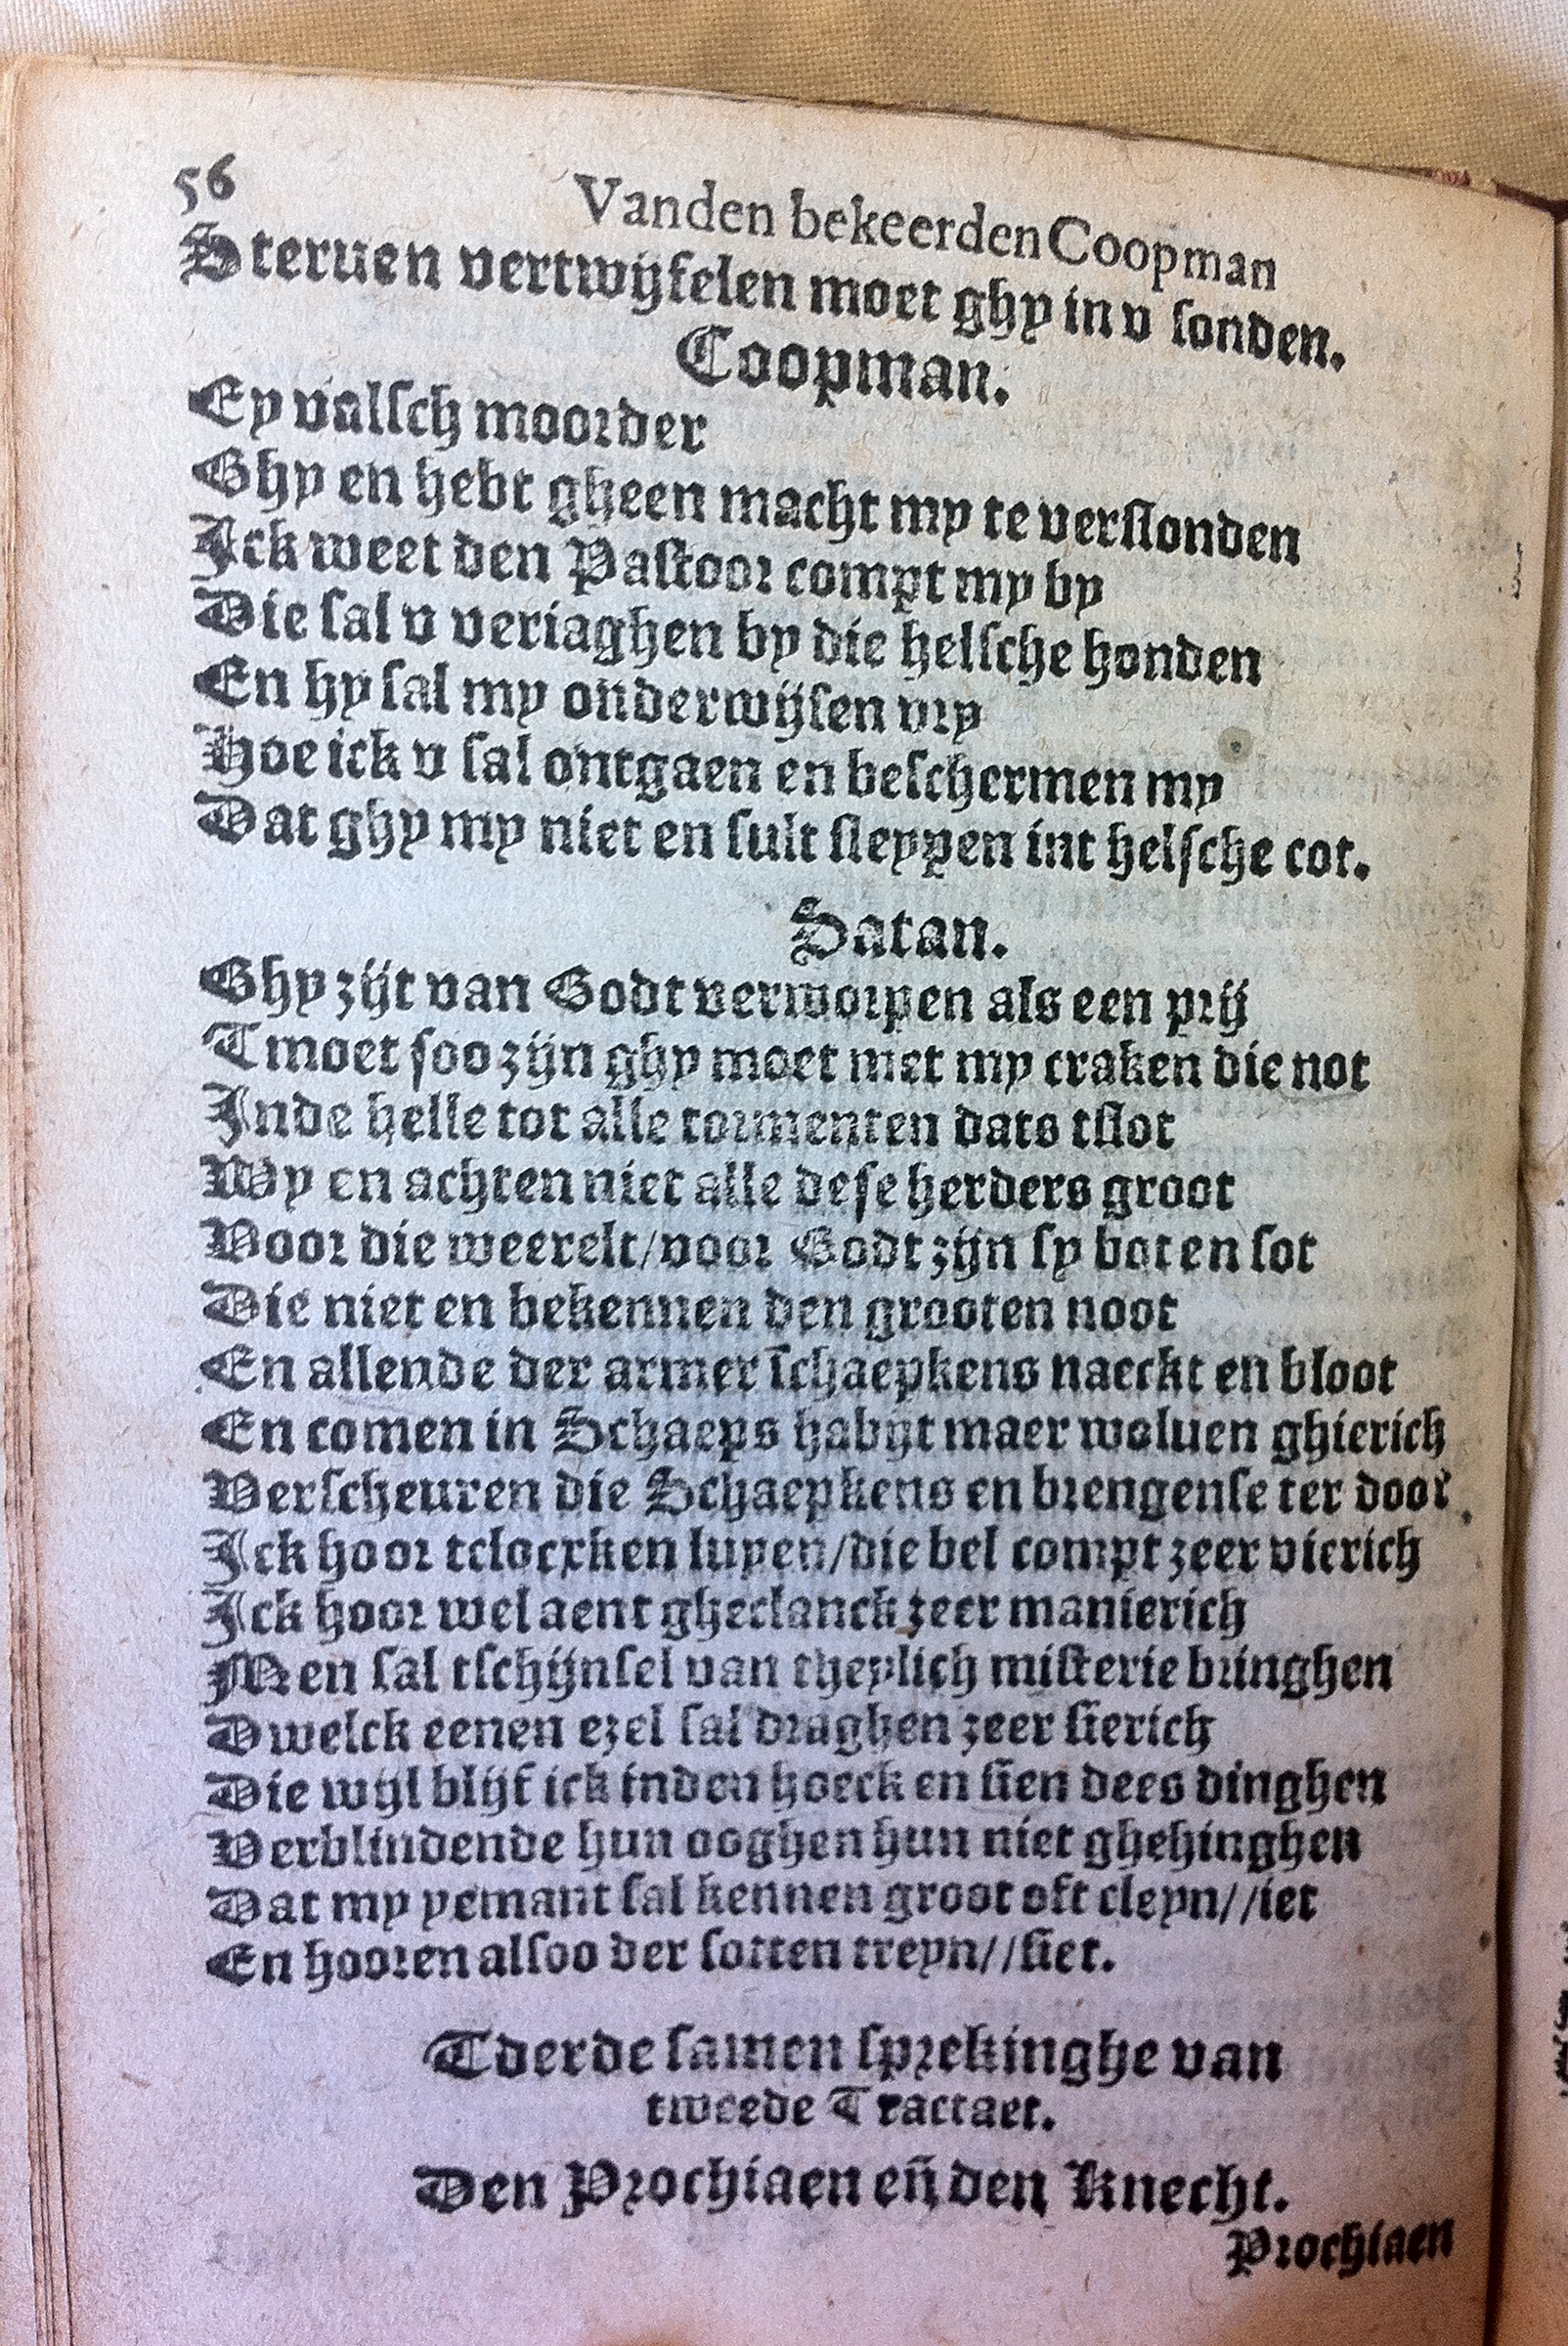 56
Vanden bekeerden Coopman
Steruen vertwijfelen moet ghy in v sonden.
Coopman.
Ey valsch moorder
Ghy en hebt gheen macht my te verslonden
Ick weet den Pastoor compt my by
Die sal v veriaghen by die helsche honden
En hy sal my onderwijsen vry
Hoe ick v sal ontgaen en beschermen my
Dat ghy my niet en sult sleppen int helsche cot.
Satan.
Ghy zijt van Godt verworpen als een prij
Tmoet soo zijn ghy moet met my craken die not
Inde helle tot alle tormenten dats tslot
Wy en achten niet alle dese herders groot
Voor die weerelt/voor Godt zijn sy bot en sot
Die niet en bekennen den grooten noot
En allende der armer schaepkens naeckt en bloot
En comen in Schaeps habijt maer woluen ghierich
Verscheuren die Schaepkens en brengense ter doot
Ick hoor tclocxken luyen/die bel compt zeer vierich
Ick hoor wel aent gheclanck zeer manierich
Men sal tschijnsel van theylich misterie bringhen
Dwelck eenen ezel sal draghen zeer sierich
Die wijl blijf ick inden hoeck en sien dees dinghen
Verblindende hun ooghen hun niet ghehinghen
Dat my yemant sal kennen groot oft cleyn//iet
En hooren alsoo der sotten treyn//siet.
Tderde samen sprekinghe van
tweede Tractaet.
Den Prochiaen eñ den Knecht.
Prochiaen